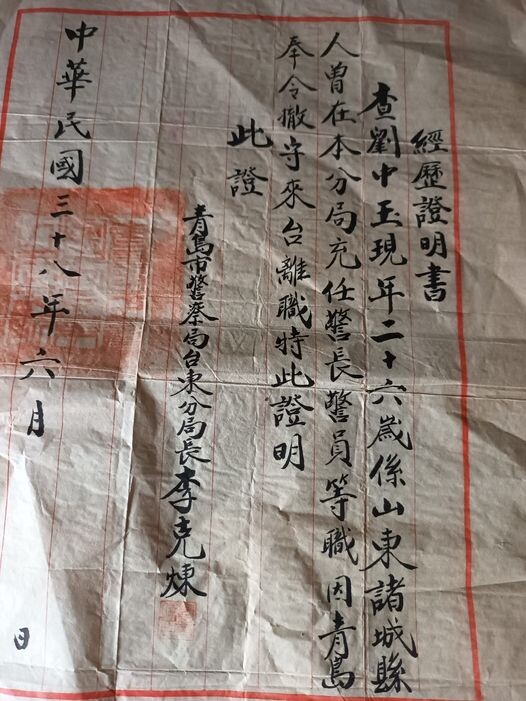 經歷證明書
查劉中玉現年二十六歲係山東諸城縣
人曾在本分局充任警長警員等職因青島
奉令撤守來台離職特此證明
此證
青島市警察局台東分局長李克煉
中華民國三十八年六月 日